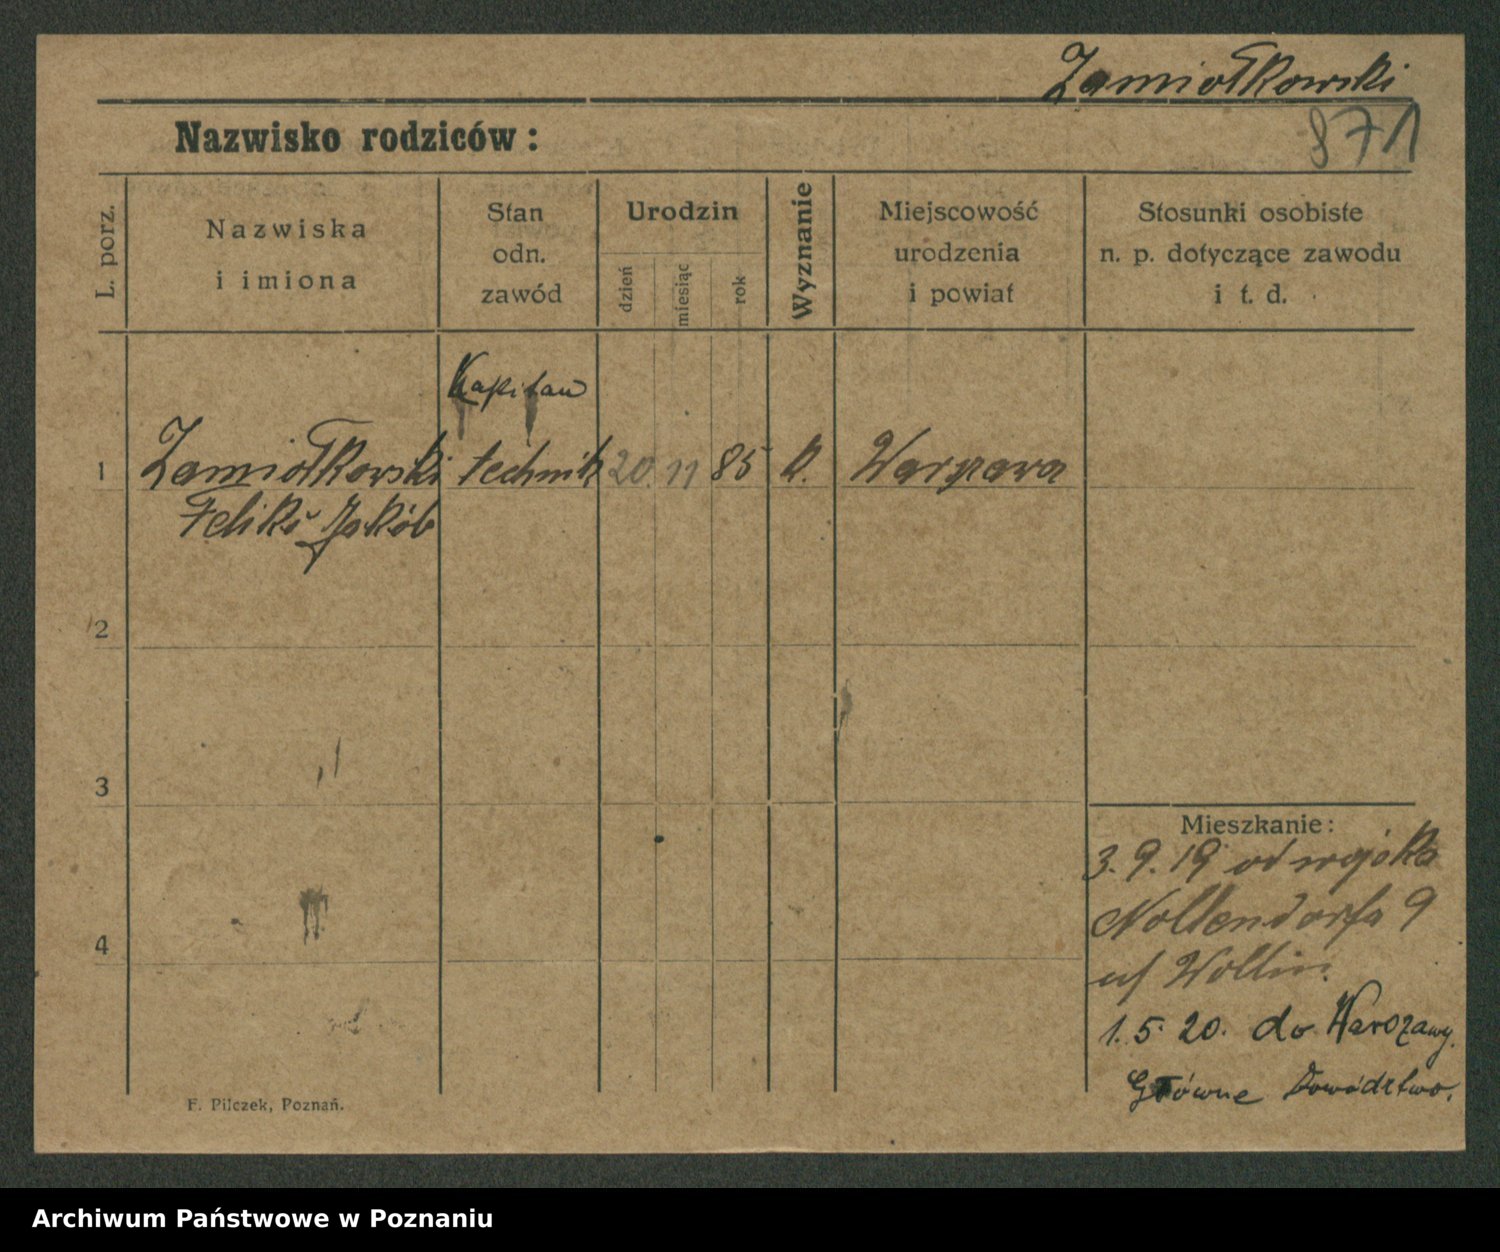 Zamiołkowski
Nazwisko rodziców:
871
L. porz.
Nazwiska
i imiona
Stan
odn.
zawód
Urodzin
dzień
miesiąc
rok
Wyznanie
Miejscowość
urodzenia
i powiat
Stosunki osobiste
n. p. dotyczące zawodu
i t. d.
Kapitan
1 Zamiołkowski technik 20. 11 85 k. Warszawa
Feliks Jakób
2
3
4
Mieszkanie:
3. 9. 19 od wojska
Nollendorfa 9
u/ Wollin.
1. 5. 20. do Warszawy.
Główne Dowództwo.
F. Pilczek, Poznań.
Archiwum Państwowe w Poznaniu